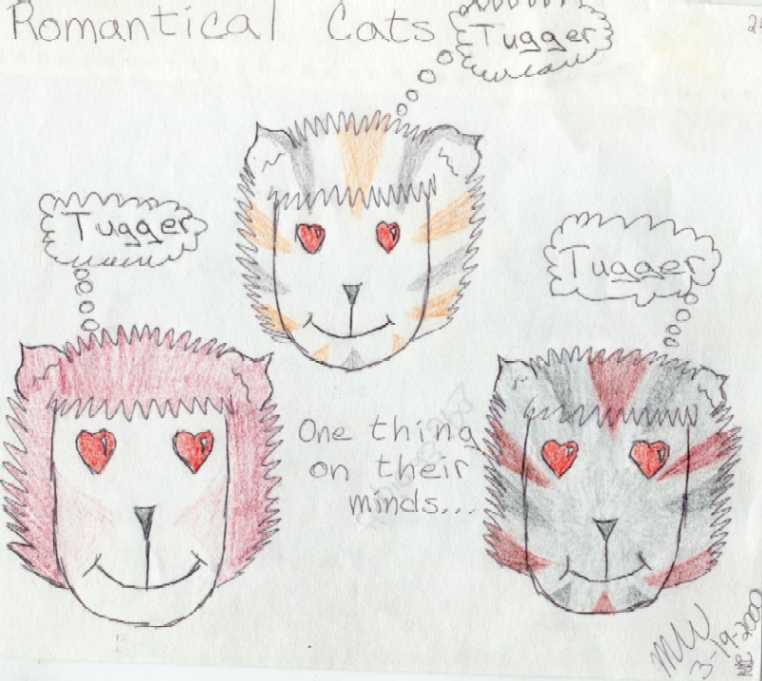 Romantical Cats
Tugger
Tugger
Tugger
One thing
on their
minds...
MW
3-19-2000